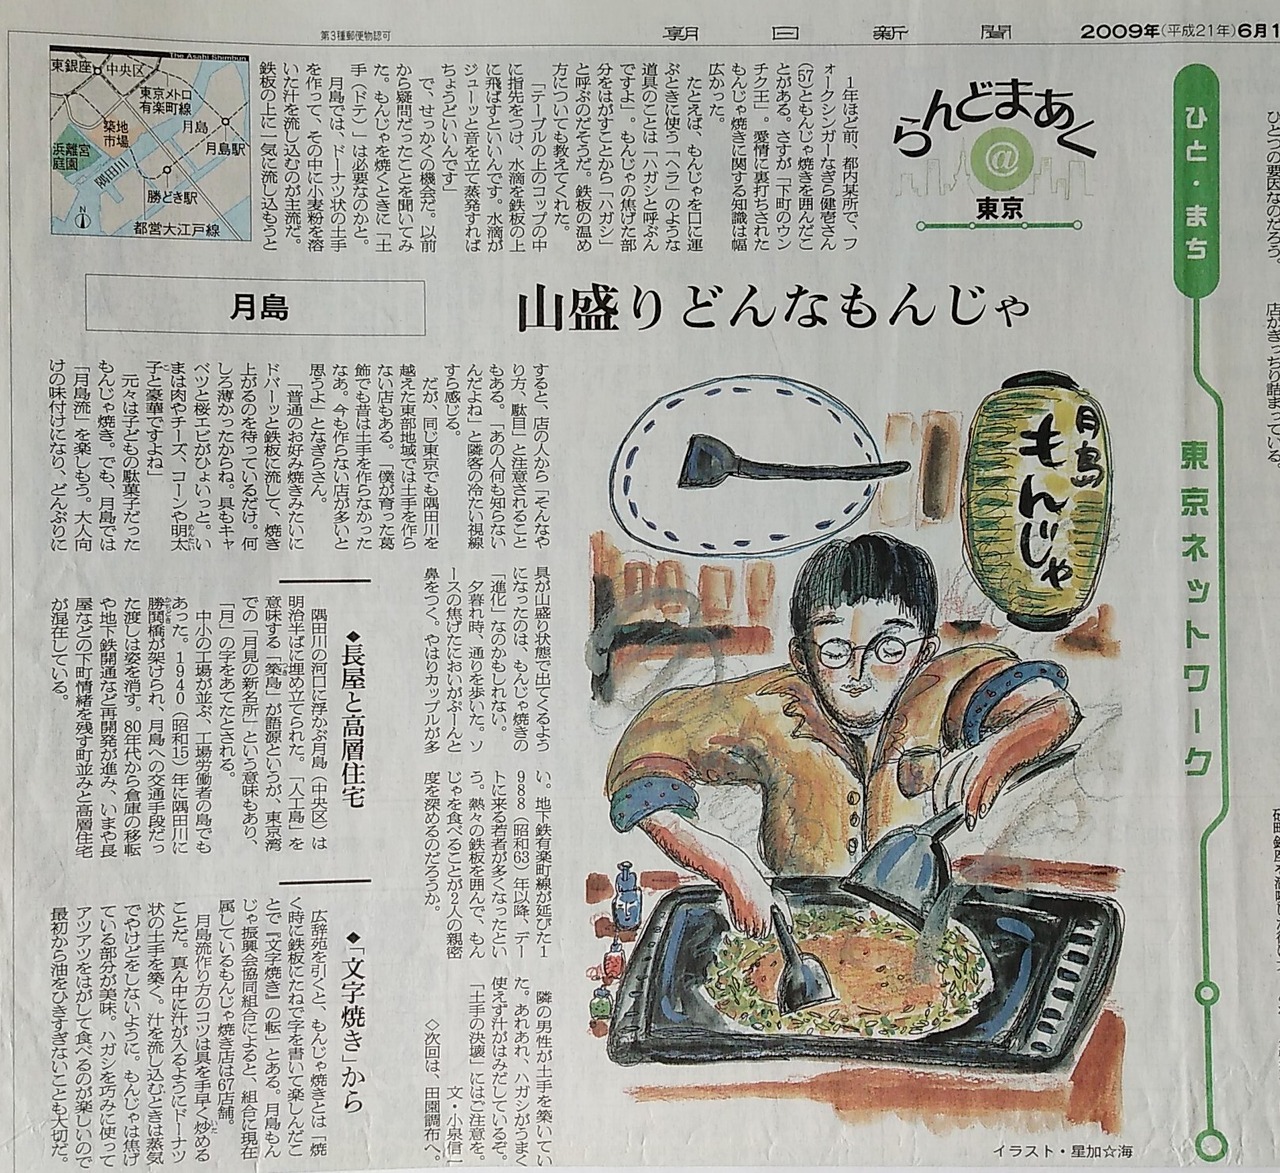 第3種郵便物認可
朝日新聞
2009年(平成21年)6月1
ひと・まち
東京ネットワーク
らんどまあく
@
東京
The Asahi Shimbun
東銀座
中央区
東京メトロ
有楽町線
築地
市場
月島
月島駅
浜離宮
庭園
勝どき駅
N
都営大江戸線
山盛りどんなもんじゃ
月島
1年ほど前、都内某所で、フ
ォークシンガーなぎら健壱さん
(57)ともんじゃ焼きを囲んだこ
とがある。さすが「下町のウン
チク王」。愛情に裏打ちされた
もんじゃ焼きに関する知識は幅
広かった。
たとえば、もんじゃを口に運
ぶときに使う「ヘラ」のような
道具のことは「ハガシと呼ぶん
ですよ」。もんじゃの焦げた部
分をはがすことから「ハガシ」
と呼ぶのだそうだ。鉄板の温め
方についても教えてくれた。
「テーブルの上のコップの中
に指先をつけ、水滴を鉄板の上
に飛ばすといいんです。水滴が
ジューッと音を立て蒸発すれば
ちょうどいいんです」
で、せっかくの機会だ。以前
から疑問だったことを聞いてみ
た。もんじゃを焼くときに「土
手(ドテ)」は必要なのかと。
月島では、ドーナツ状の土手
を作って、その中に小麦粉を溶
いた汁を流し込むのが主流だ。
鉄板の上に一気に流し込もうと
すると、店の人から「そんなや
り方、駄目」と注意されること
もある。「あの人何も知らない
んだよね」と隣客の冷たい視線
すら感じる。
だが、同じ東京でも隅田川を
越えた東部地域では土手を作ら
ない店もある。「僕が育った葛
飾でも昔は土手を作らなかった
なあ。今も作らない店が多いと
思うよ」となぎらさん。
「普通のお好み焼きみたいに
ドバーッと鉄板に流して、焼き
上がるのを待っているだけ。何
しろ薄かったからね。具もキャ
ベツと桜エビがひょいっと。い
まは肉やチーズ、コーンや明太
めんたい
子と豪華ですよね」
こ
元々は子どもの駄菓子だった
もんじゃ焼き。でも、月島では
「月島流」を楽しもう。大人向
けの味付けになり、どんぶりに
具が山盛り状態で出てくるよう
になったのは、もんじゃ焼きの
「進化」なのかもしれない。
夕暮れ時、通りを歩いた。ソ
ースの焦げたにおいがぷーんと
鼻をつく。やはりカップルが多
い。地下鉄有楽町線が延びた1
988(昭和63)年以降、デー
トに来る若者が多くなったとい
う。熱々の鉄板を囲んで、もん
じゃを食べることが2人の親密
度を深めるのだろうか。
隣の男性が土手を築いてい
た。あれあれ、ハガシがうまく
使えず汁がはみだしているぞ。
「土手の決壊」にはご注意を。
文・小泉信一
◇次回は、田園調布へ。
◆長屋と高層住宅
隅田川の河口に浮かぶ月島(中央区)は
明治半ばに埋め立てられた。「人工島」を
意味する「築島」が語源というが、東京湾
での「月見の新名所」という意味もあり、
「月」の字をあてたとされる。
中小の工場が並ぶ、工場労働者の島でも
あった。1940(昭和15)年に隅田川に
勝鬨橋が架けられ、月島への交通手段だっ
かちどき
た渡しは姿を消す。80年代から倉庫の移転
や地下鉄開通など再開発が進み、いまや長
屋などの下町情緒を残す町並みと高層住宅
が混在している。
◆「文字焼き」から
広辞苑を引くと、もんじゃ焼きとは「焼
く時に鉄板にたねで字を書いて楽しんだこ
とで『文字焼き』の転」とある。月島もん
じゃ振興会協同組合によると、組合に現在
属しているもんじゃ焼き店は67店舗。
月島流作り方のコツは具を手早く炒める
いた
ことだ。真ん中に汁が入るようにドーナツ
状の土手を築く。汁を流し込むときは蒸気
でやけどをしないように。もんじゃは焦げ
ている部分が美味。ハガシを巧みに使って
アツアツをはがして食べるのが楽しいので
最初から油をひきすぎないことも大切だ。
月島
もんじゃ
イラスト・星加☆海
ひとつの要因なのだろう。
店がぎっちり詰まっている。